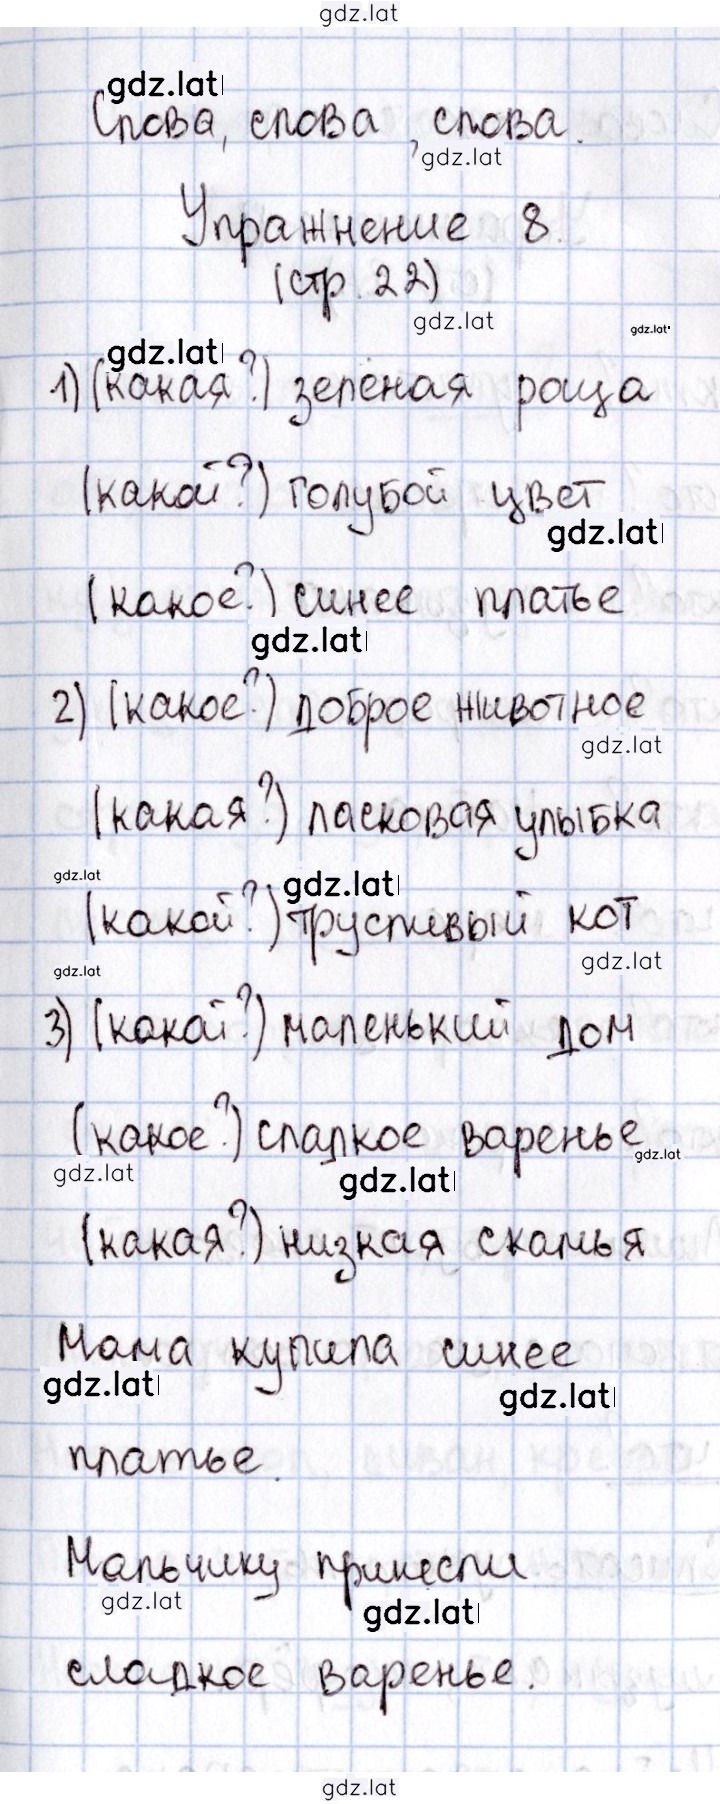 gdz.lat
gdz.lat
Слова, слова, слова.
gdz.lat
Упражнение 8.
(стр. 22)
gdz.lat
gdz.lat
gdz.lat
1) (какая?) зелёная роща
(какой?) голубой цвет
gdz.lat
(какое?) синее платье
gdz.lat
2) (какое?) доброе животное
gdz.lat
(какая?) ласковая улыбка
gdz.lat
gdz.lat
(какой?) трусливый кот
gdz.lat
gdz.lat
3) (какой?) маленький дом
(какое?) сладкое варенье
gdz.lat
gdz.lat
gdz.lat
(какая?) низкая скамья
Мама купила синее
gdz.lat
gdz.lat
платье.
Мальчику принесли
gdz.lat
gdz.lat
сладкое варенье.
gdz.lat